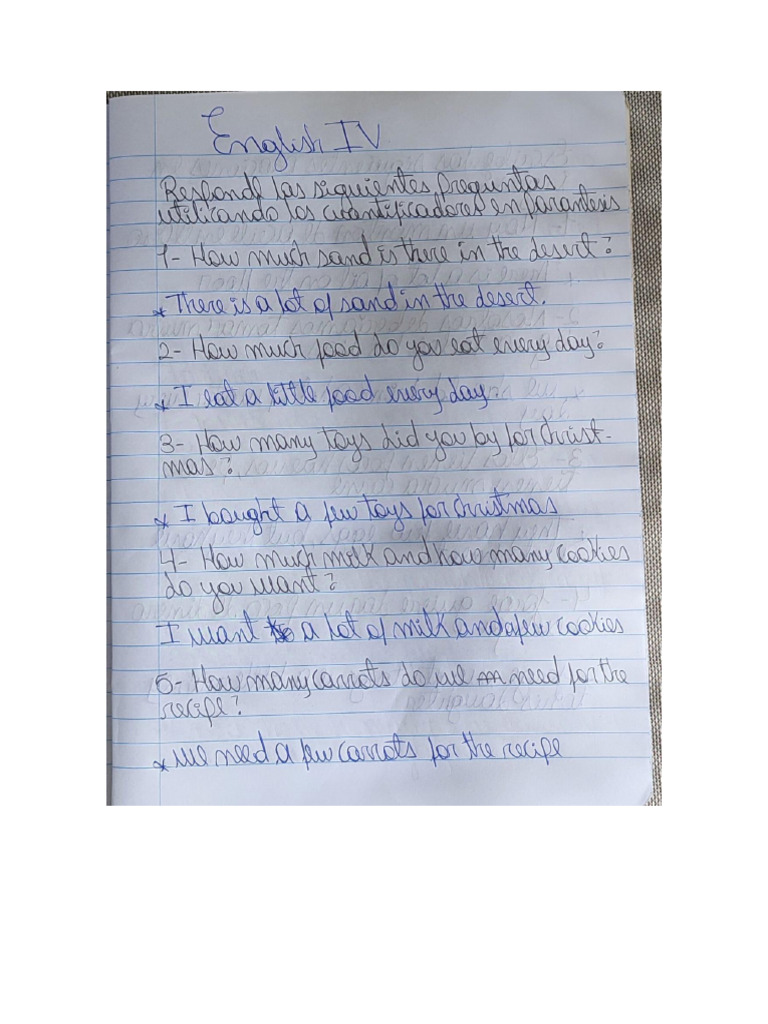 English IV
Responde las siguientes preguntas
utilizando los cuantificadores en parantesis
1- How much sand is there in the desert?
* There is a lot of sand in the desert.
2- How much food do you eat every day?
* I eat a little food every day.
3- How many toys did you by for christ-
mas?
* I bought a few toys for christmas
4- How much milk and how many cookies
do you want?
I want a lot of milk and a few cookies
5- How many carrots do we need for the
recipe?
* We need a few carrots for the recipe